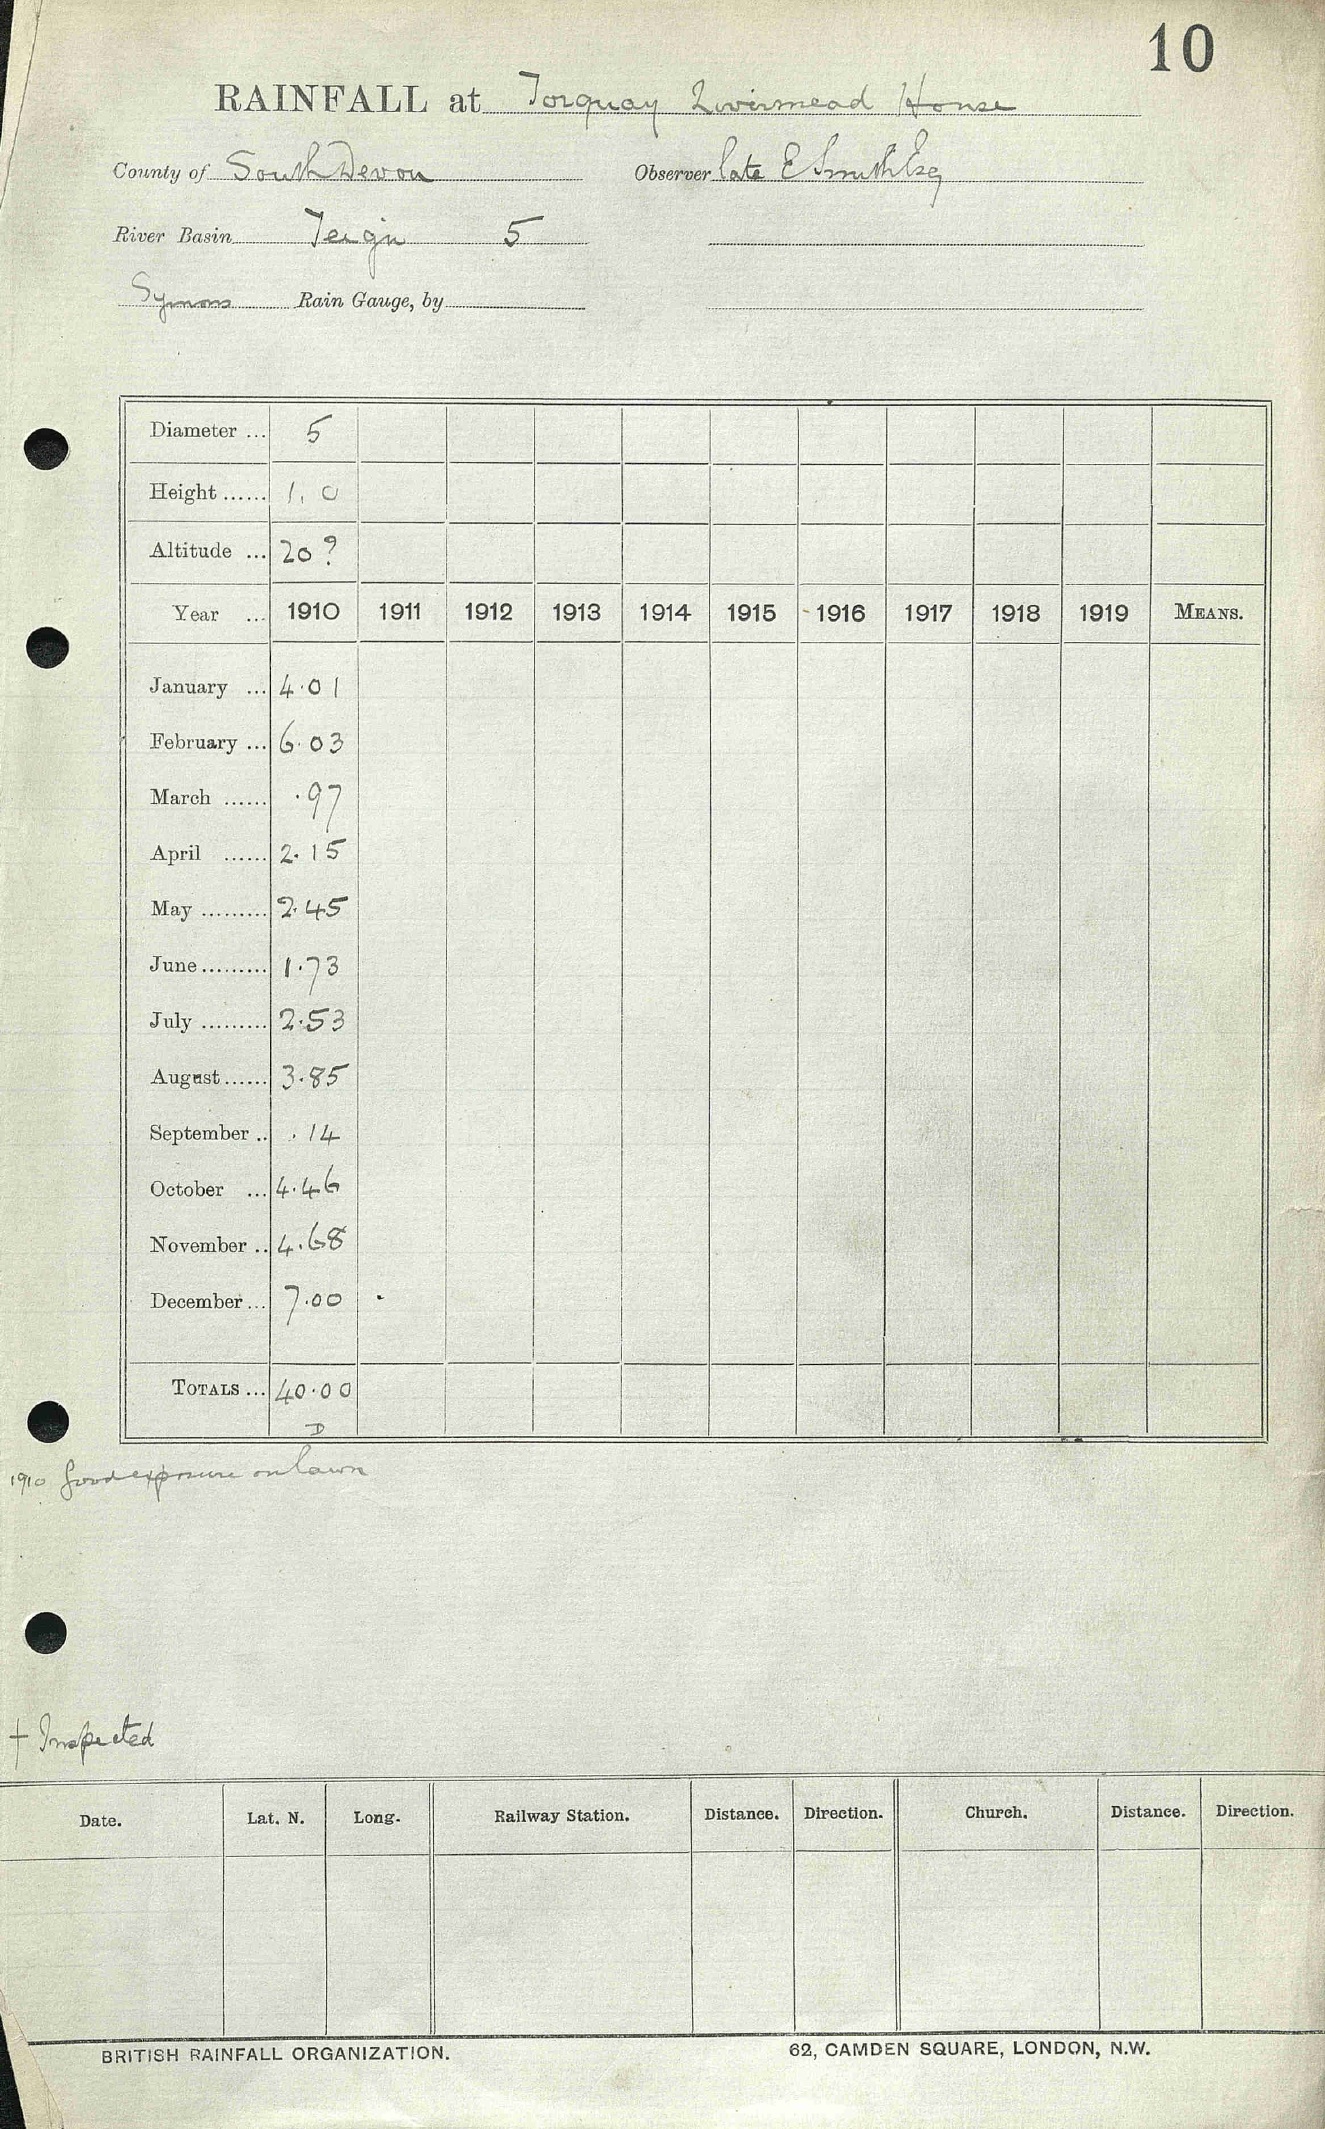 10
RAINFALL at Torquay Livermead House
County of South Devon Observer late E Smith Esq
River Basin Teign 5
Symons Rain Gauge, by
Diameter ... 5
Height ...... 1. 0
Altitude ... 20 ?
Year ... 1910 1911 1912 1913 1914 1915 1916 1917 1918 1919 MEANS.
January ... 4.01
February ... 6.03
March ...... .97
April ...... 2.15
May ......... 2.45
June ......... 1.73
July ......... 2.53
August ...... 3.85
September .. .14
October ... 4.46
November .. 4.68
December ... 7.00
TOTALS ... 40.00
D
1910 Good exposure on lawn
† Inspected
Date. Lat. N. Long. Railway Station. Distance. Direction. Church. Distance. Direction.
BRITISH RAINFALL ORGANIZATION. 62, CAMDEN SQUARE, LONDON, N.W.